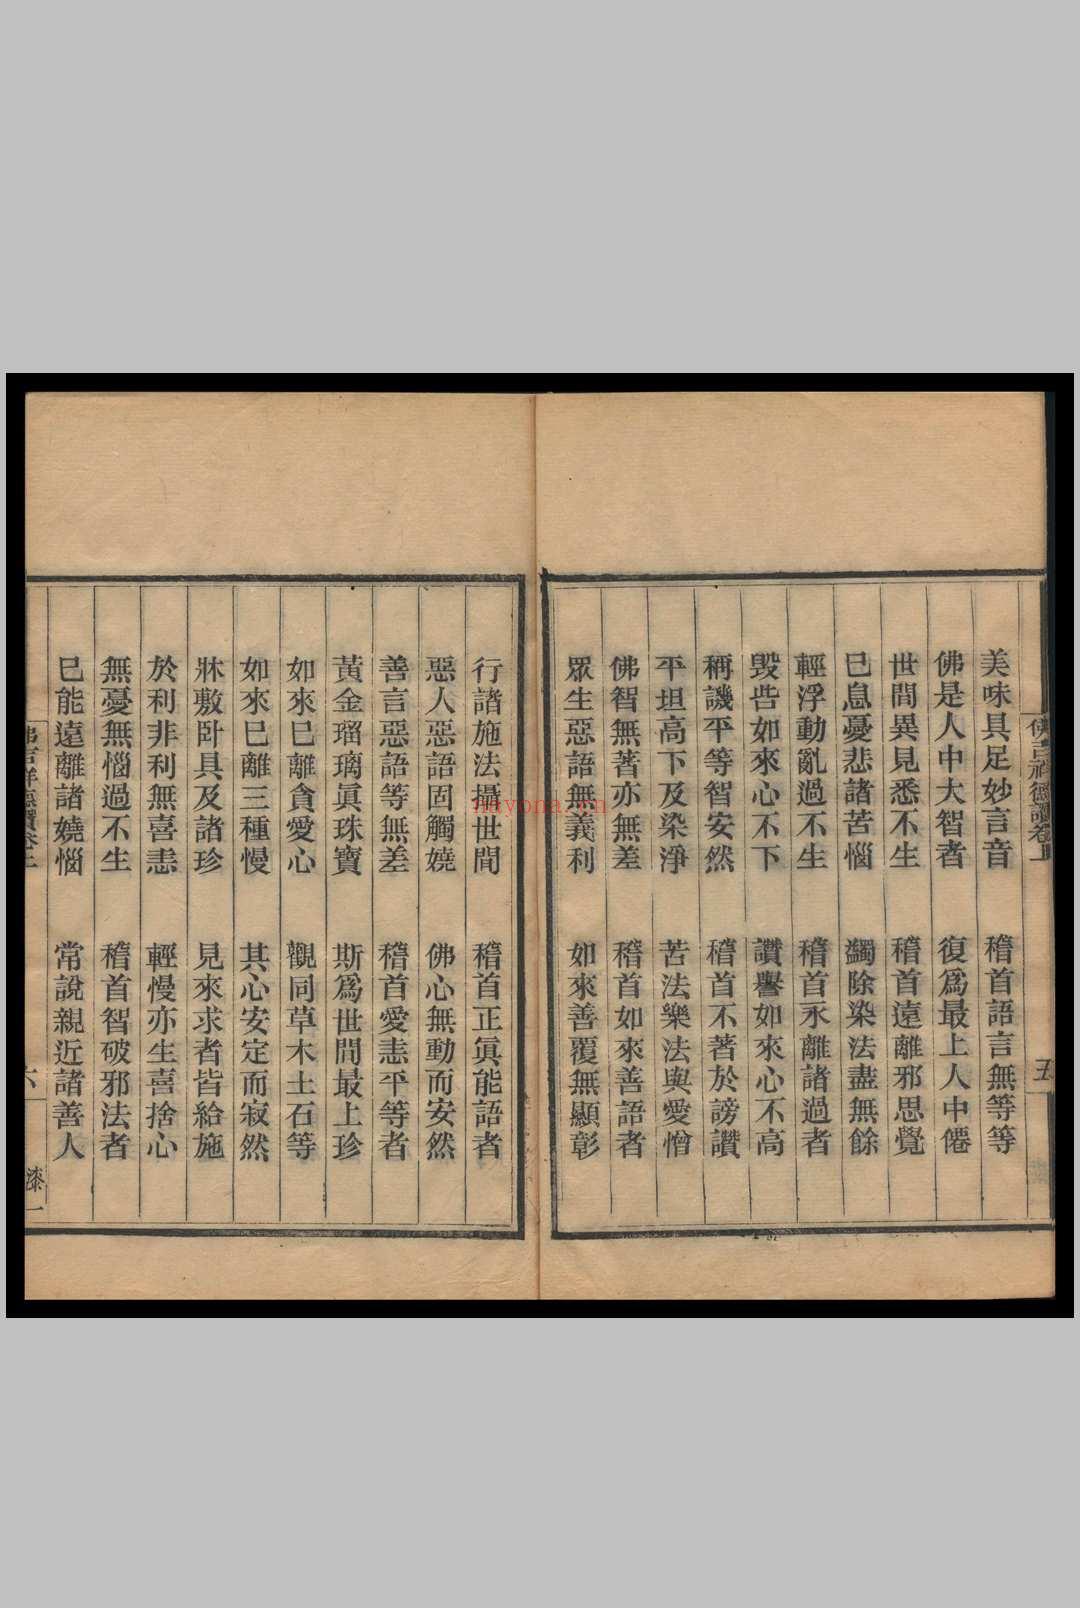 佛吉祥德讚卷上
五
美味具足妙言音　稽首語言無等等
佛是人中大智者　復爲最上人中僊
世間異見悉不生　稽首遠離邪思覺
已息憂悲諸苦惱　蠲除染法盡無餘
輕浮動亂過不生　稽首永離諸過者
毀呰如來心不下　讚譽如來心不高
稱譏平等智安然　稽首不著於謗讚
平坦高下及染淨　苦法樂法與愛憎
佛智無著亦無差　稽首如來善語者
眾生惡語無義利　如來善覆無顯彰
行諸施法攝世間　稽首正眞能語者
惡人惡語固觸嬈　佛心無動而安然
善言惡語等無差　稽首愛恚平等者
黃金瑠璃眞珠寶　斯爲世間最上珍
如來已離貪愛心　觀同草木土石等
如來已離三種慢　其心安定而寂然
牀敷卧具及諸珍　見來求者皆給施
於利非利無喜恚　輕慢亦生喜捨心
無憂無惱過不生　稽首智破邪法者
已能遠離諸嬈惱　常說親近諸善人
佛吉祥德讚卷上
六
漆一
nayona.cn